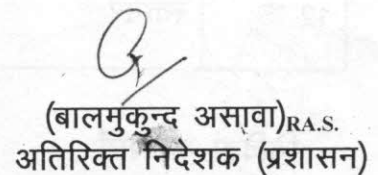 (बालमुकुन्द असावा)RA.S.
अतिरिक्त निदेशक (प्रशासन)